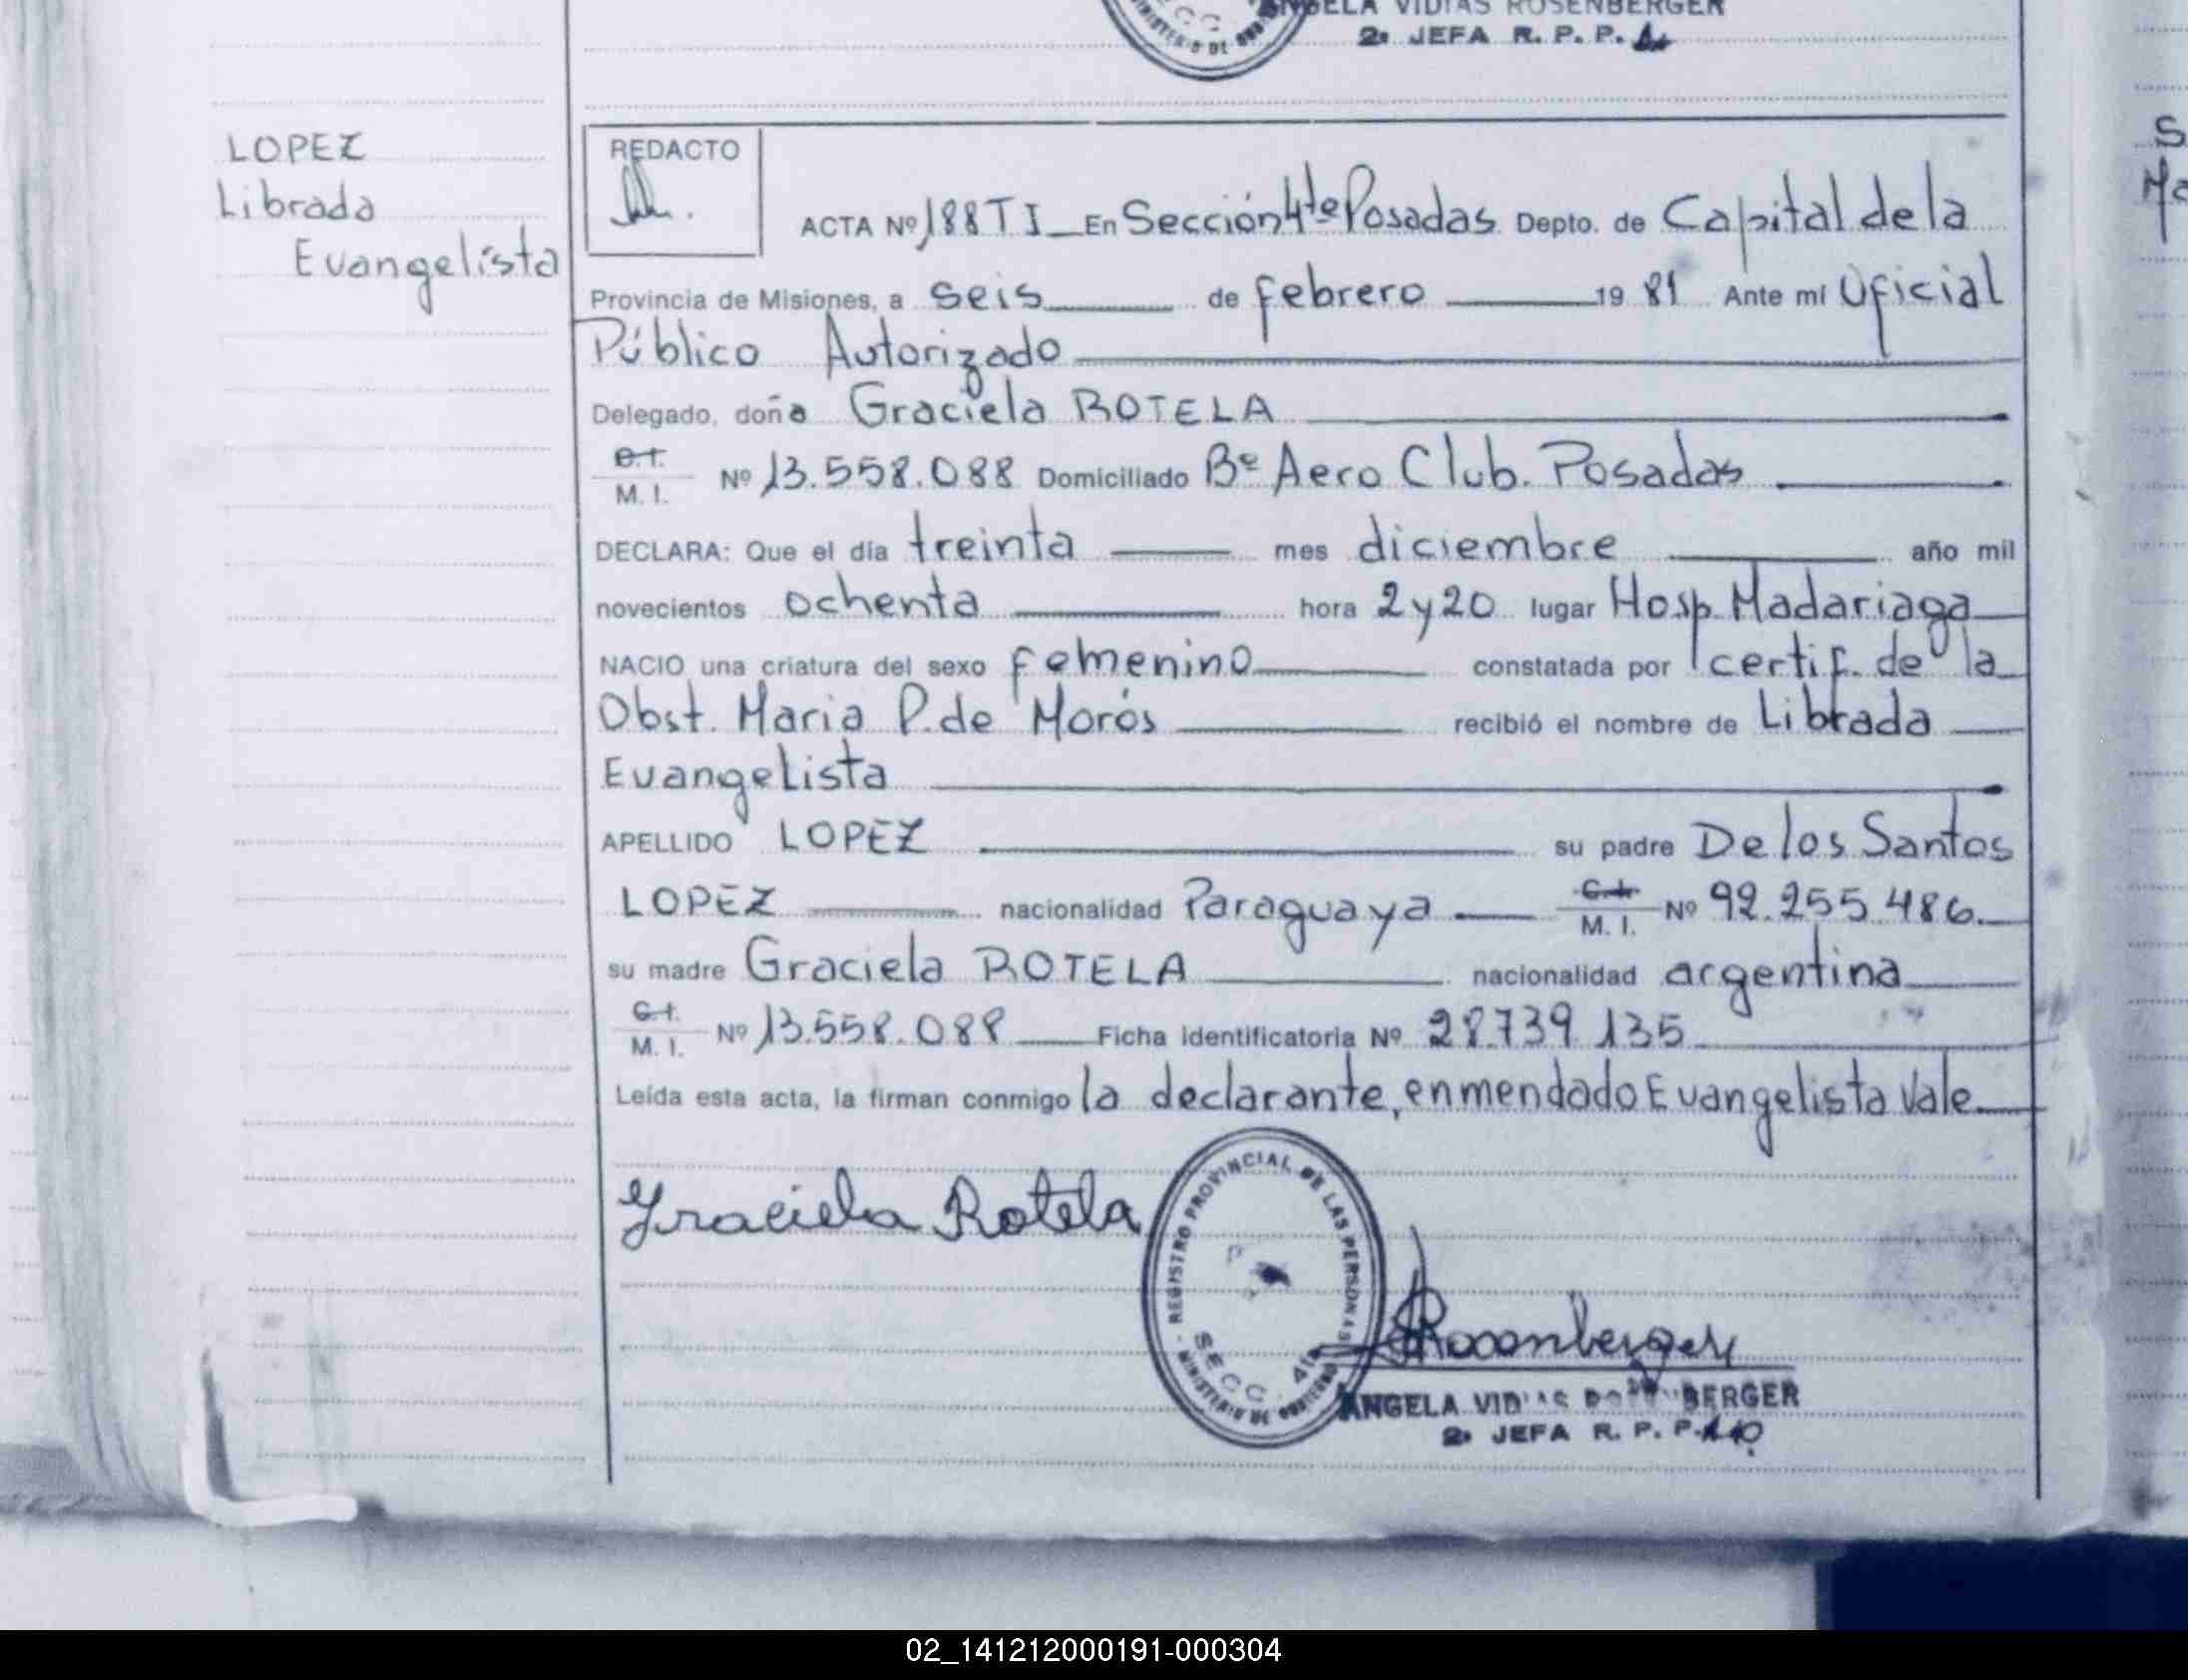 ANGELA VIDIAS ROSENBERGER
2a JEFA R. P. P.
MINISTERIO DE
LOPEZ
Librada
Evangelista
REDACTO
ACTA Nº 188 T I En Sección 4ta Posadas Depto. de Capital de la
Provincia de Misiones, a seis de febrero 19 81 Ante mí Oficial
Público Autorizado
Delegado, doña Graciela ROTELA
C.I.
M. I. Nº 13.558.088 Domiciliado Bº Aero Club. Posadas
DECLARA: Que el día treinta mes diciembre año mil
novecientos ochenta hora 2 y 20 lugar Hosp. Madariaga
NACIO una criatura del sexo femenino constatada por certif. de la
Obst. Maria P. de Morós recibió el nombre de Librada
Evangelista
APELLIDO LOPEZ su padre De los Santos
LOPEZ nacionalidad Paraguaya C.I. M. I. Nº 92.255.486
su madre Graciela ROTELA nacionalidad argentina
C.I.
M. I. Nº 13.558.088 Ficha identificatoria Nº 28.739.135
Leída esta acta, la firman conmigo la declarante, enmendado Evangelista Vale
Graciela Rotela
REGISTRO PROVINCIAL DE LAS PERSONAS
SECC. 4ta
MINISTERIO DE GOBIERNO
Rosenberger
ANGELA VIDIAS ROSENBERGER
2a JEFA R. P. P.
02_141212000191-000304